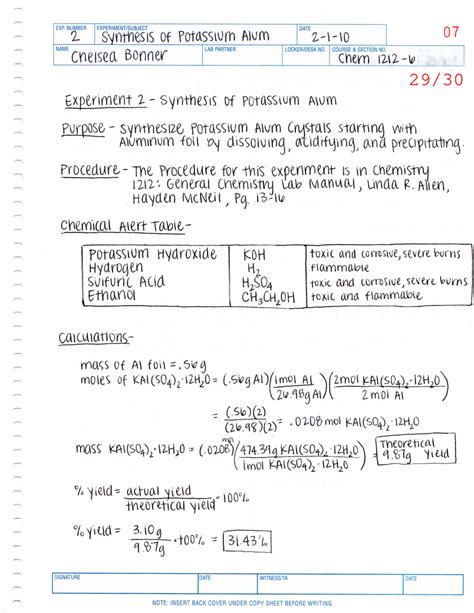 EXP. NUMBER EXPERIMENT/SUBJECT DATE
2 Synthesis of Potassium Alum 2-1-10 07
NAME LAB PARTNER LOCKER/DESK NO. COURSE & SECTION NO.
Chelsea Bonner Chem 1212-6
29/30
Experiment 2 - Synthesis of Potassium Alum
Purpose - Synthesize Potassium Alum Crystals starting with
Aluminum foil by dissolving, acidifying, and precipitating.
Procedure - The Procedure for this experiment is in Chemistry
1212: General Chemistry Lab Manual, Linda R. Allen,
Hayden McNeil, Pg. 13-16
Chemical Alert Table -
Potassium Hydroxide KOH toxic and corrosive, severe burns
Hydrogen H₂ flammable
Sulfuric Acid H₂SO₄ toxic and corrosive, severe burns
Ethanol CH₃CH₂OH toxic and flammable
Calculations-
mass of Al foil = .56g
moles of KAl(SO₄)₂·12H₂O = (.56g Al)(1mol Al/26.98g Al)(2mol KAl(SO₄)₂·12H₂O/2 mol Al)
= (.56)(2)/(26.98)(2) = .0208 mol KAl(SO₄)₂·12H₂O
mass KAl(SO₄)₂·12H₂O = (.0208 mol)(474.39g KAl(SO₄)₂·12H₂O/1mol KAl(SO₄)₂·12H₂O) = Theoretical 9.87g Yield
% yield = actual yield/theoretical yield · 100%
% yield = 3.10g/9.87g · 100% = 31.43%
SIGNATURE DATE WITNESS/TA DATE
NOTE: INSERT BACK COVER UNDER COPY SHEET BEFORE WRITING